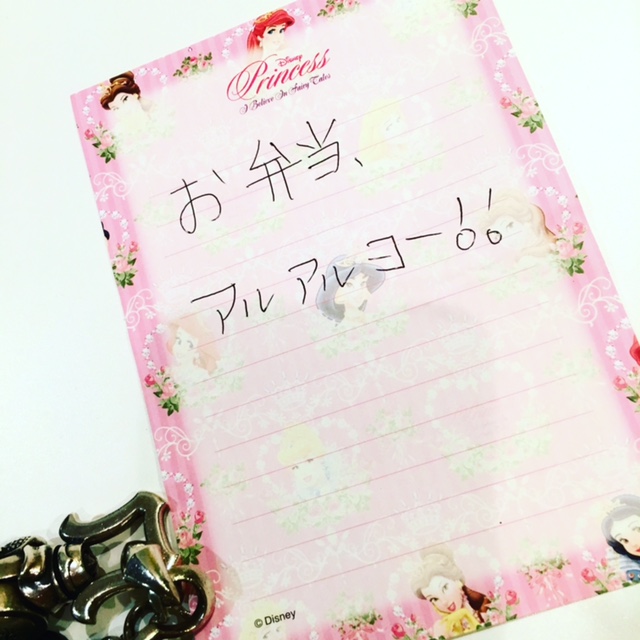 Disney
Princess
I Believe In Fairy Tales
お弁当、
アルアルヨー!!
© Disney